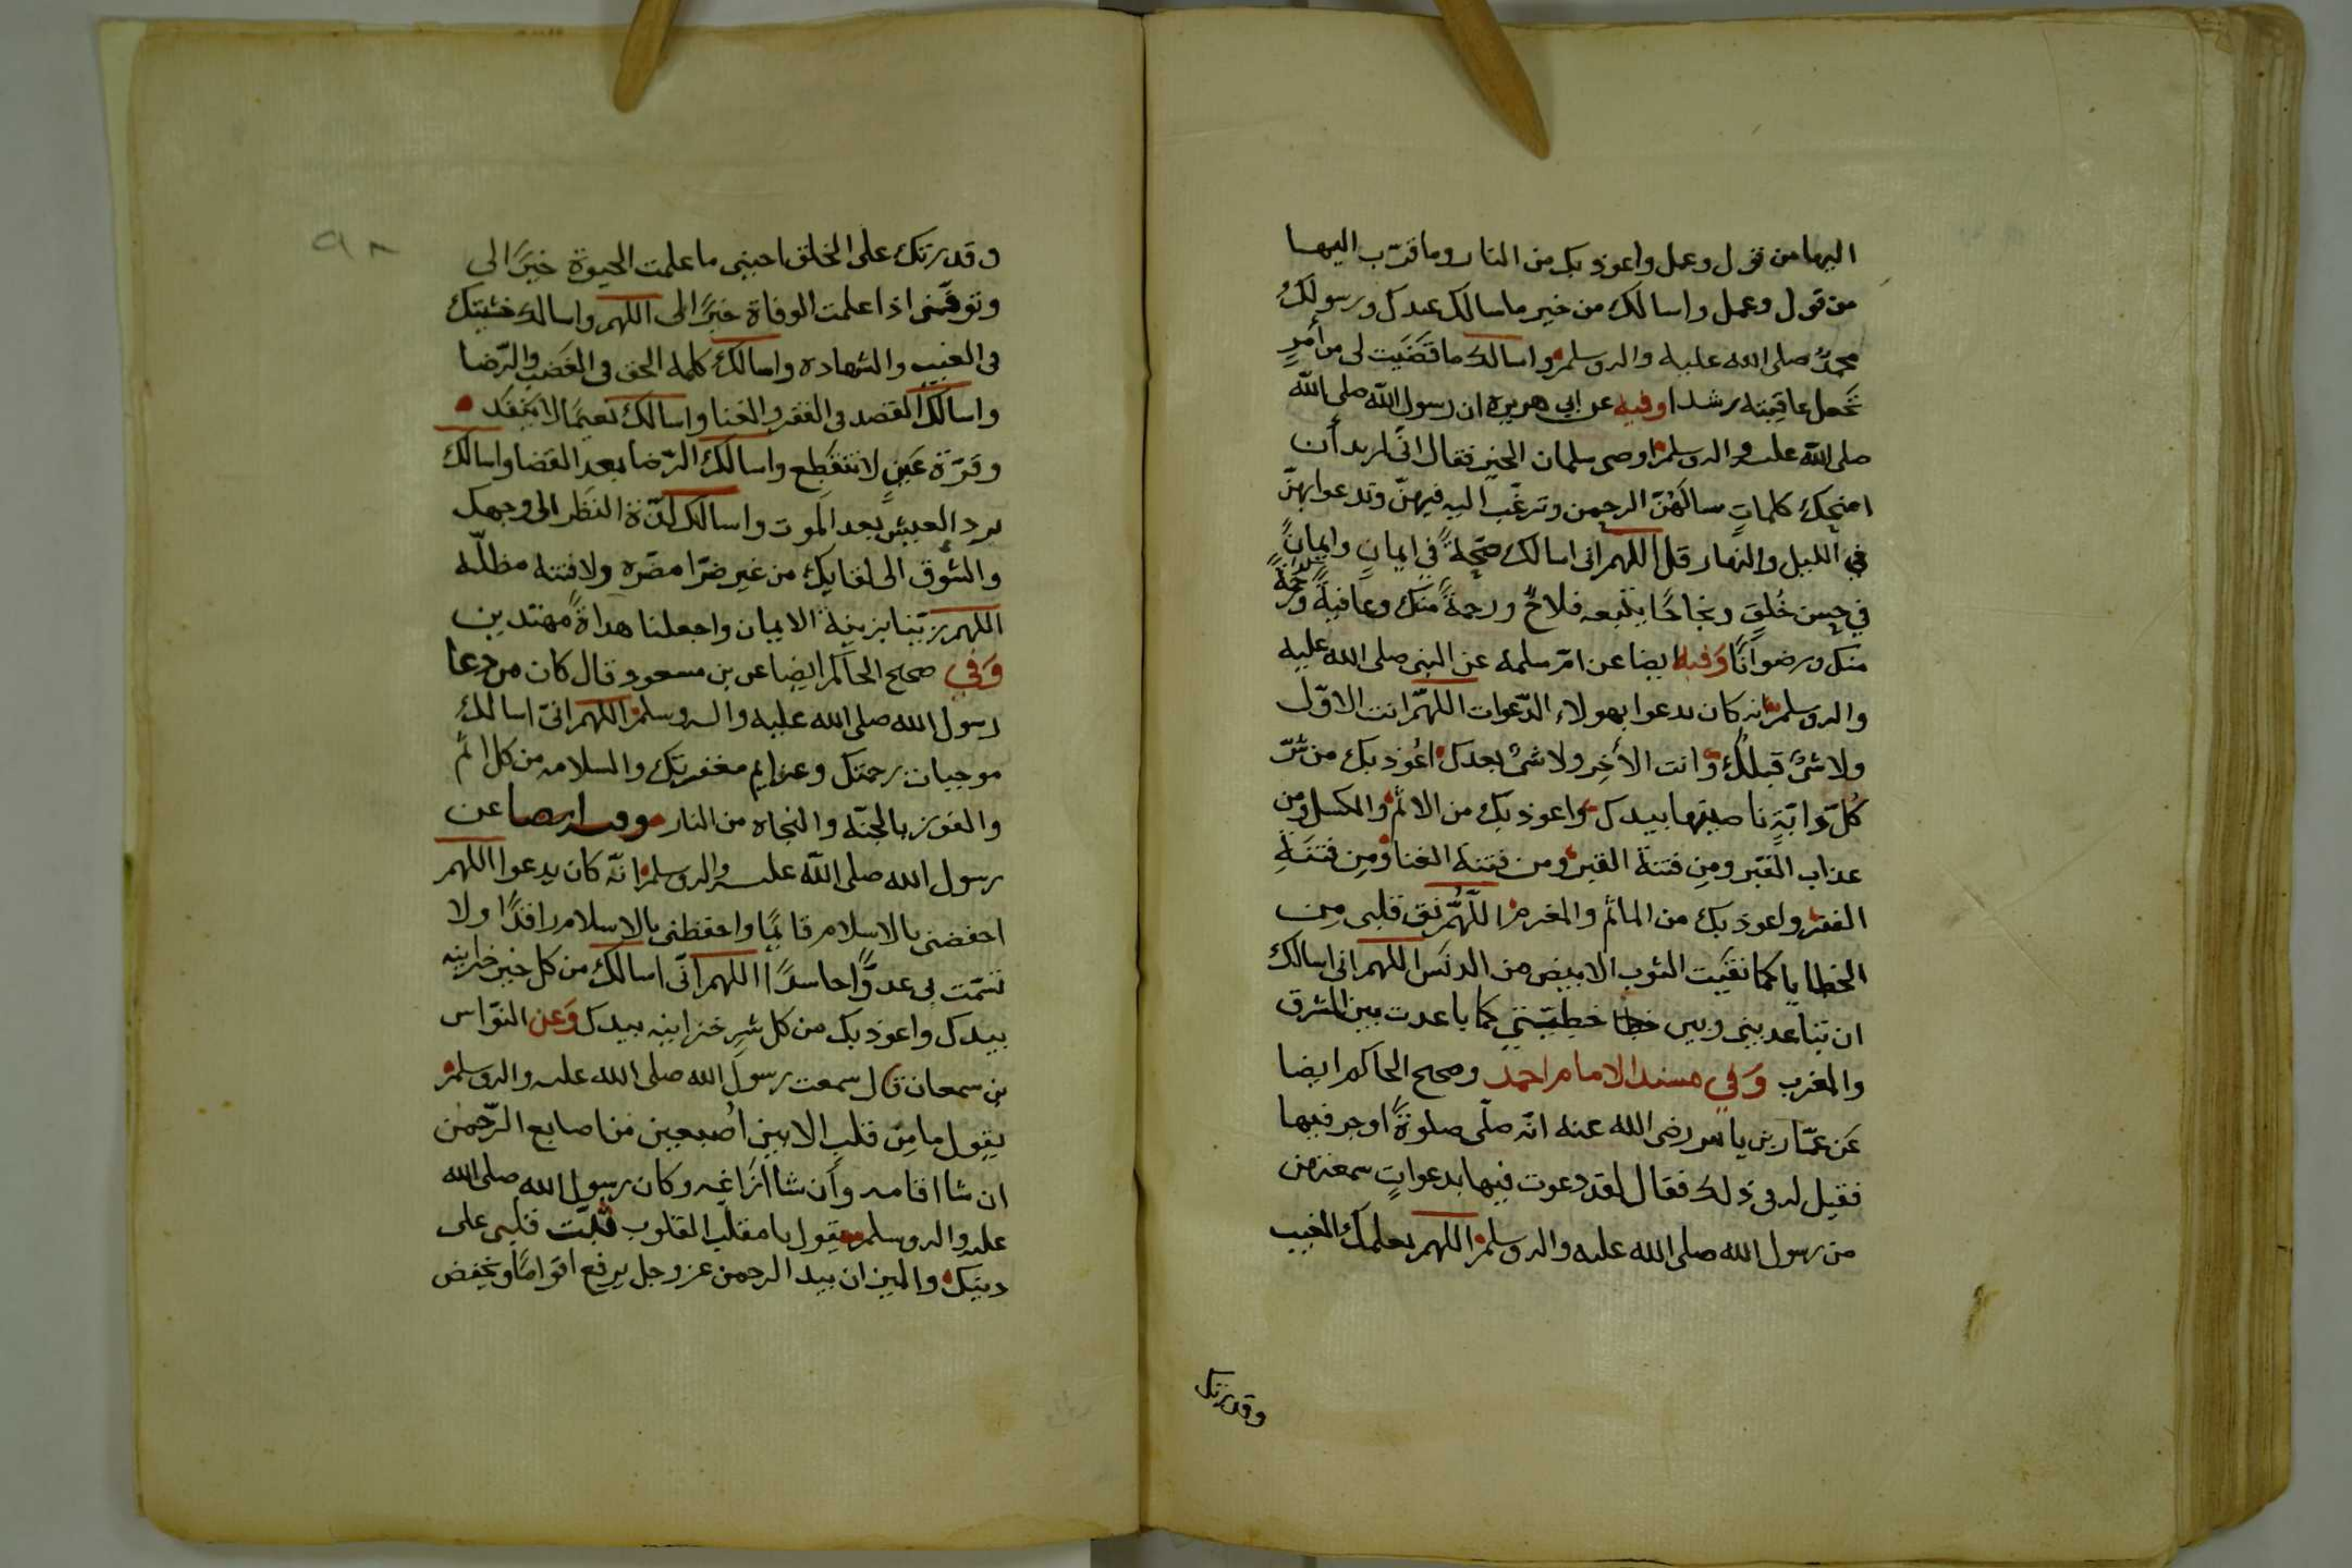 اليها من قول وعمل واعوذ بك من النار وما قرّب اليها
من قول وعمل واسالك من خير ما سالك عبدك ورسولك
محمدٌ صلى الله عليه واله وسلم واسالك ما قضَيت لى من أمرٍ
تجعل عاقبته رشدا وفيه عن ابي هريره ان رسول الله صلى الله
صلى الله عليه واله وسلم اوصى سلمان الخير فقال انى اريد أن
امنحك كلماتٍ سالهُنّ الرحمن وترغب اليه فيهنّ وتدعوا بهنّ
في الليل والنهار قل اللهم انى اسالك صحّةً في ايمانٍ وايمانً
في حسن خُلقٍ ونجاحًا يتبعه فلاحٌ ورحمةً منك وعافيةً ومغفرة
منك ورضوانًا وفيه ايضا عن امّ سلمه عن النبى صلى الله عليه
واله وسلم انه كان يدعوا بهولاء الدّعوات اللهمّ انت الاوّل
ولا شىْ قبلك وانت الأخِر ولا شىْ بعدك اعُوذ بك من شرّ
كُلّ دَابّةٍ ناصيتها بيدك واعوذ بك من الاثم والكسل ومن
عذاب القبر ومِن فتنة القبر ومن فتنة الغنا ومِن فتنَةِ
الفقر واعوذ بك من الماثم والمغرم اللّهُمّ نق قلبى من
الخطايا كما نقّيت الثوب الابيض من الدنَس اللهم انى اسالك
ان تباعد بينى وبين خطا خطيئتي كما باعدت بين المشرق
والمغرب وَفي مسند الامام احمد وصحيح الحاكم ايضا
عَن عمّار بن ياسر رضى الله عنه انّه صلّى صلوةً اوجز فيها
فقيل له فى ذلك فقال لقد دعوت فيها بدعواتٍ سمعتهن
من رسول الله صلى الله عليه واله وسلم اللهم بعلمك الغيب
وقدرتك
٩٨
وقدرتك على الخلق احينى ما علمت الحيوة خيرًا لى
وتوفَّنى اذا علمت الوفاة خيرًا لى اللهم واسالك خشيتك
فى الغيب والشهاده واسالك كلمة الحق فى الغَضب والرّضا
واسالك القصد فى الفقر والغنا واسالك نعيمًا لا ينفَد
وقرّة عَينٍ لا تنقطِع واسالك الرّضا بعد القضا واسالك
برد العيش بعد الموت واسالك لذّة النظَر الى وجهك
والشوق الى لقايك من غير ضرّا مضرّه ولا فتنه مظلّه
اللهم زيّنا بزينة الايمان واجعلنا هداةً مهتدين
وَفي صحيح الحاكم ايضِا عن بن مسعود قال كان من دعا
رسول الله صلى الله عليه واله وسلم اللهم انىّ اسالك
موجبات رحمتك وعزايم مغفرتك والسلامه من كل اثم
والفوز بالجنّة والنجاه من النار وفيه ايضا عن
رسول الله صلى الله عليه واله وسلم انّه كان يدعوا اللهم
احفضنى بالاسلام قايمًا واحفظنى بالاسلام راقدًا ولا
تشمّت بى عدوًّا حاسدًا اللهم انّى اسالك من كل خير خزاينه
بيدك واعوذ بك من كل شرٍ خزاينه بيدك وَعن النوّاس
بن سمعان قال سمعت رسولَ الله صلى الله عليه واله وسلم
يقول ما مِن قلبٍ الا بين اُصبعين من اصابع الرّحمن
ان شا اقامه وأن شا أزَاغه وكان رسول الله صلى الله
عليه واله وسلم يقول يا مقلّب القلوب ثبّت قلبى على
دينك والميزان بيد الرحمن عز وجل يرفع اقوامًا ويخفض